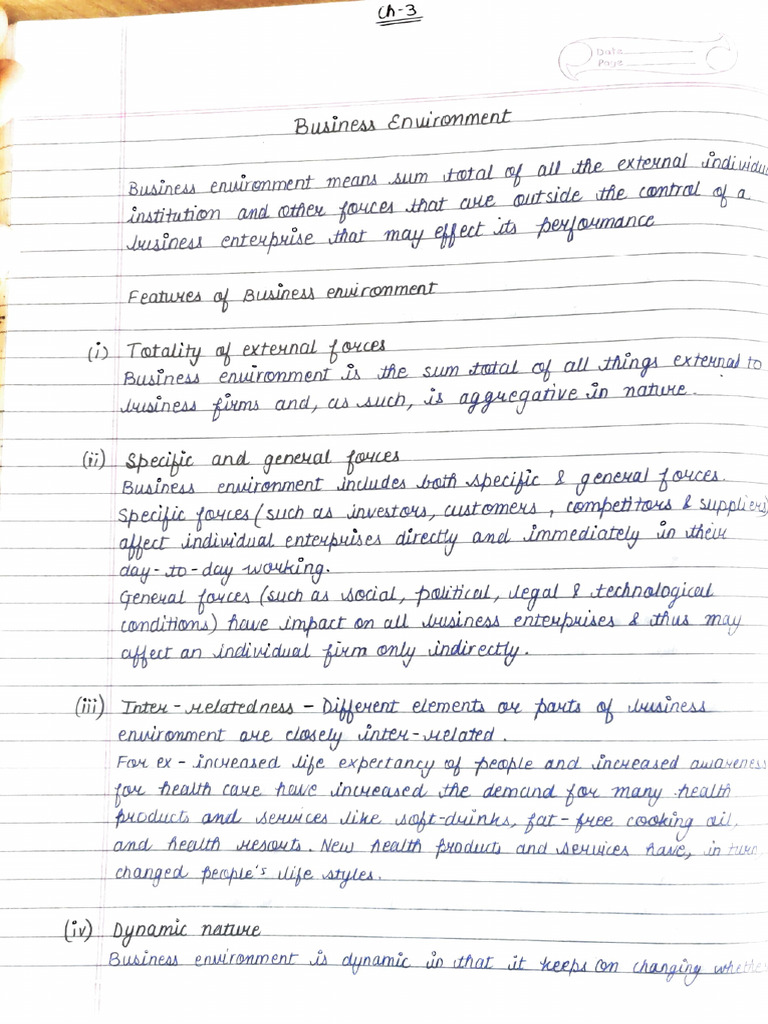 Ch-3
Date
Page
Business Environment
Business environment means sum total of all the external individu
institution and other forces that are outside the control of a
business enterprise that may effect its performance
Features of Business environment
(i) Totality of external forces
Business environment is the sum total of all things external to
business firms and, as such, is aggregative in nature.
(ii) Specific and general forces
Business environment includes both specific & general forces.
Specific forces (such as investors, customers, competitors & suppliers)
affect individual enterprises directly and immediately in their
day-to-day working.
General forces (such as social, political, legal & technological
conditions) have impact on all business enterprises & thus may
affect an individual firm only indirectly.
(iii) Inter-relatedness - Different elements or parts of business
environment are closely inter-related.
For ex - increased life expectancy of people and increased awareness
for health care have increased the demand for many health
products and services like soft-drinks, fat-free cooking oil,
and health resorts. New health products and services have, in turn,
changed people's life styles.
(iv) Dynamic nature
Business environment is dynamic in that it keeps on changing whethe